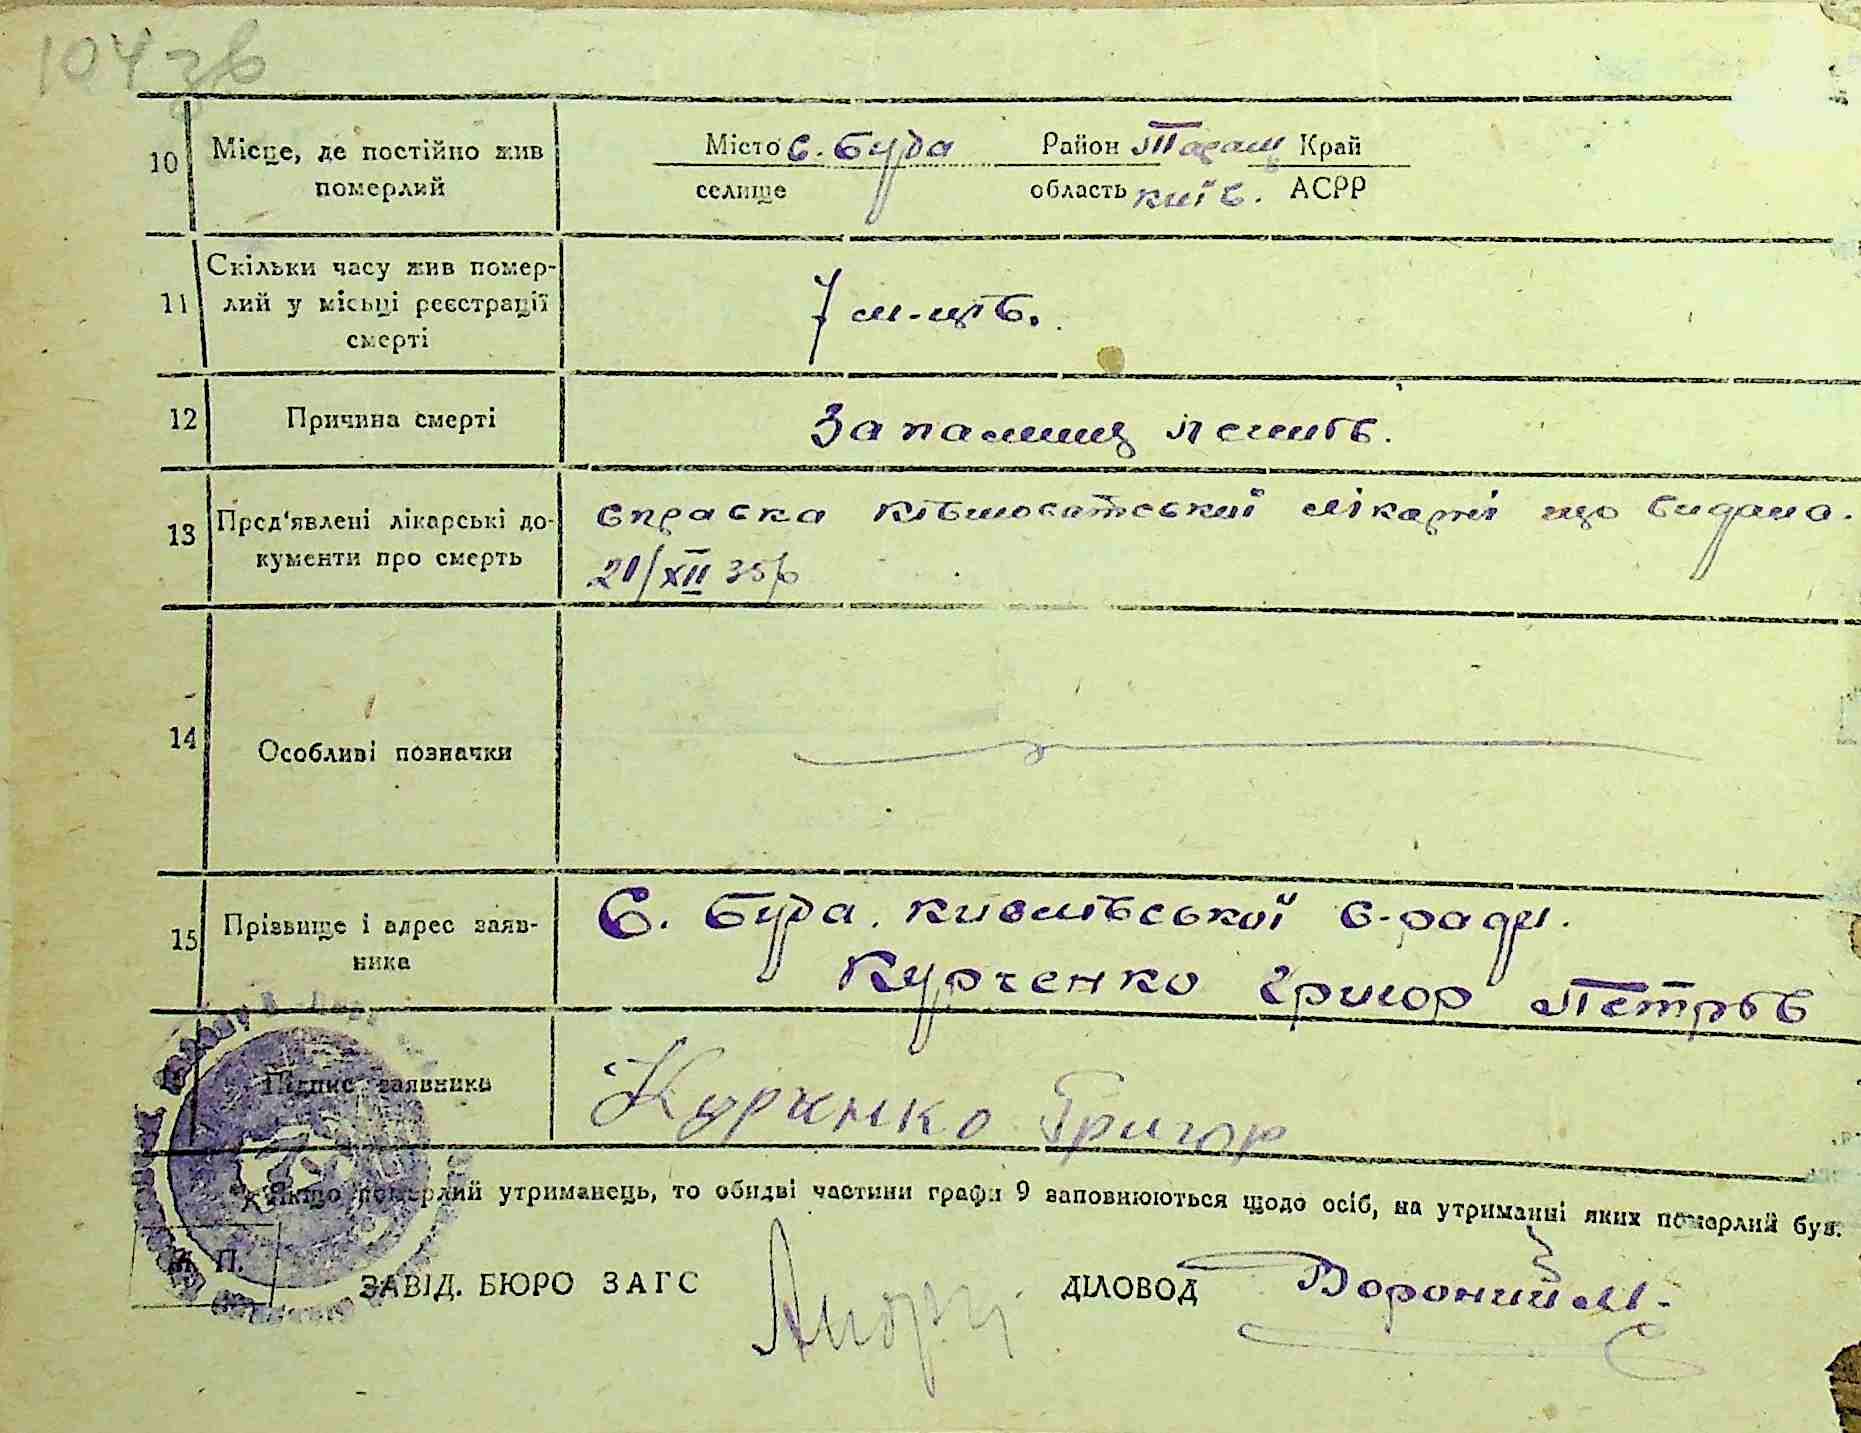 104 зв
10 Місце, де постійно жив померлий
Місто с. Буда Район Таращ Край
селище область київ. АСРР
11 Скільки часу жив помер-
лий у місьці реєстрації
смерті
7 м-ців.
12 Причина смерті
Запалиниц легинів.
13 Пред'явлені лікарські до-
кументи про смерть
справка ківшоватської лікарні що видана.
21/XII 35р
14 Особливі позначки
15 Прізвище і адрес заяв-
ника
С. Буда. кислівської с-ради.
Курченко Григор Петров
Підпис заявника
Курченко Григор
Якщо померлий утриманець, то обидві частини графи 9 заповнюються щодо осіб, на утриманні яких померлий був.
М. П.
ЗАВІД. БЮРО ЗАГС
ДІЛОВОД Вороний М.